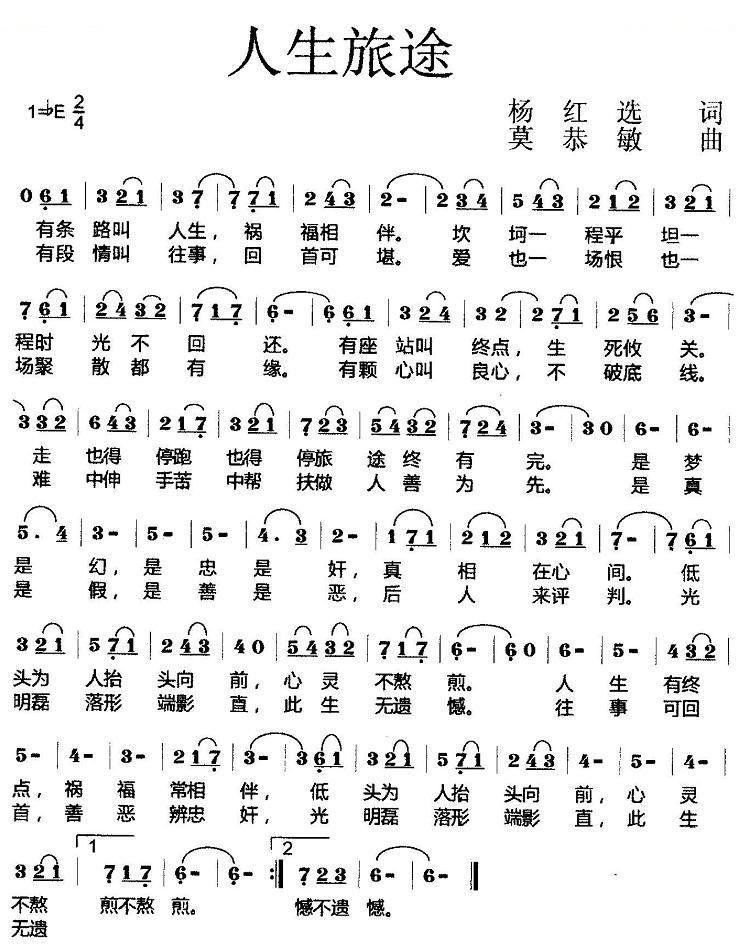 人生旅途
1=♭E 2/4
杨红选 词
莫恭敏 曲
0 6 1 | 3 2 1 | 3 7 | 7 7 1 | 2 4 3 | 2 - | 2 3 4 | 5 4 3 | 2 1 2 | 3 2 1 |
有条 路叫 人生, 祸 福相 伴。 坎 坷一 程平 坦一
有段 情叫 往事, 回 首可 堪。 爱 也一 场恨 也一
7 6 1 | 2 4 3 2 | 7 1 7 | 6 - | 6 6 1 | 3 2 4 | 3 2 | 2 7 1 | 2 5 6 | 3 - |
程时 光不 回 还。 有座 站叫 终点, 生 死攸 关。
场聚 散都 有 缘。 有颗 心叫 良心, 不 破底 线。
3 3 2 | 6 4 3 | 2 1 7 | 3 2 1 | 7 2 3 | 5 4 3 2 | 7 2 4 | 3 - | 3 0 | 6 - | 6 - |
走 也得 停跑 也得 停旅 途终 有 完。 是 梦
难 中伸 手苦 中帮 扶做 人善 为 先。 是 真
5 . 4 | 3 - | 5 - | 5 - | 4 . 3 | 2 - | 1 7 1 | 2 1 2 | 3 2 1 | 7 - | 7 6 1 |
是 幻, 是 忠 是 奸, 真 相 在心 间。 低
是 假, 是 善 是 恶, 后 人 来评 判。 光
3 2 1 | 5 7 1 | 2 4 3 | 4 0 | 5 4 3 2 | 7 1 7 | 6 - | 6 0 | 6 - | 5 - | 4 3 2 |
头为 人抬 头向 前, 心 灵 不熬 煎。 人 生 有终
明磊 落形 端影 直, 此 生 无遗 憾。 往 事 可回
5 - | 4 - | 3 - | 2 1 7 | 3 - | 3 6 1 | 3 2 1 | 5 7 1 | 2 4 3 | 5 - | 4 - |
点, 祸 福 常相 伴, 低 头为 人抬 头向 前, 心 灵
首, 善 恶 辨忠 奸, 光 明磊 落形 端影 直, 此 生
1 2
3 2 1 | 7 1 7 | 6 - | 6 - :‖ 7 2 3 | 6 - | 6 - ‖
不熬 煎不熬 煎。 憾不遗 憾。
无遗